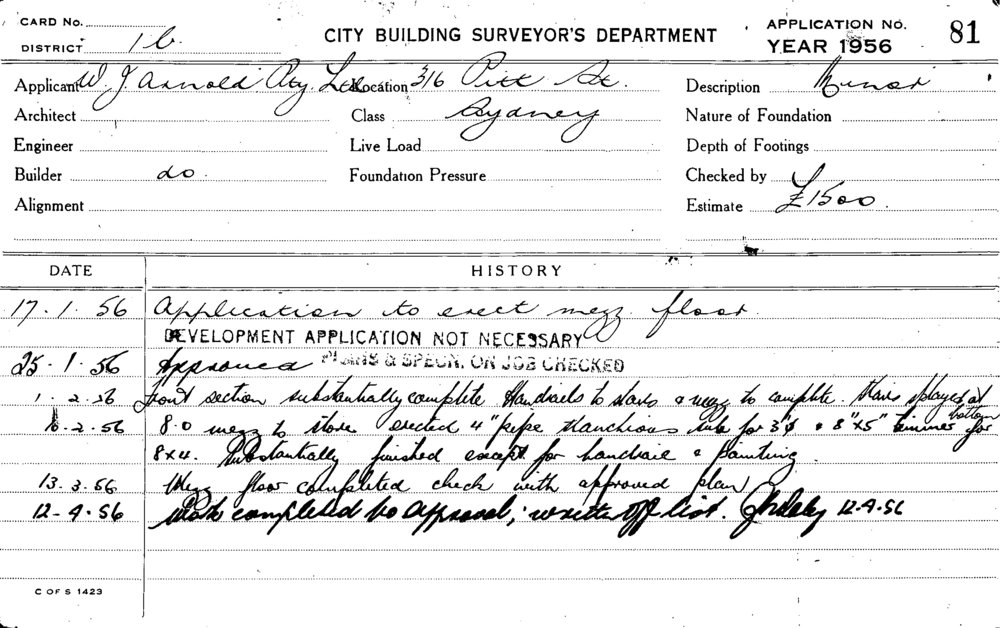 CARD No.
DISTRICT 1 b.
CITY BUILDING SURVEYOR'S DEPARTMENT
APPLICATION No. 81
YEAR 1956
Applicant W. J. Arnold Pty. Ltd. Location 316 Pitt St. Description Minor
Architect Class Sydney Nature of Foundation
Engineer Live Load Depth of Footings
Builder do. Foundation Pressure Checked by
Alignment Estimate £1500.
DATE HISTORY
17.1.56 Application to erect mezz floor.
DEVELOPMENT APPLICATION NOT NECESSARY
25.1.56 Approved PLANS & SPECN. ON JOB CHECKED
1.2.56 Front section substantially complete Handrails to stairs & mezz to complete. Stairs splayed at bottom
16.2.56 8.0 mezz to store erected 4" pipe stanchions sub for 3"φ & 8"x5" for
8x4. Substantially finished except for handrail & painting.
13.3.56 Mezz floor completed check with approved plan
12-4-56 Work completed to approval; written off list. 12.4.56
C OF S 1423